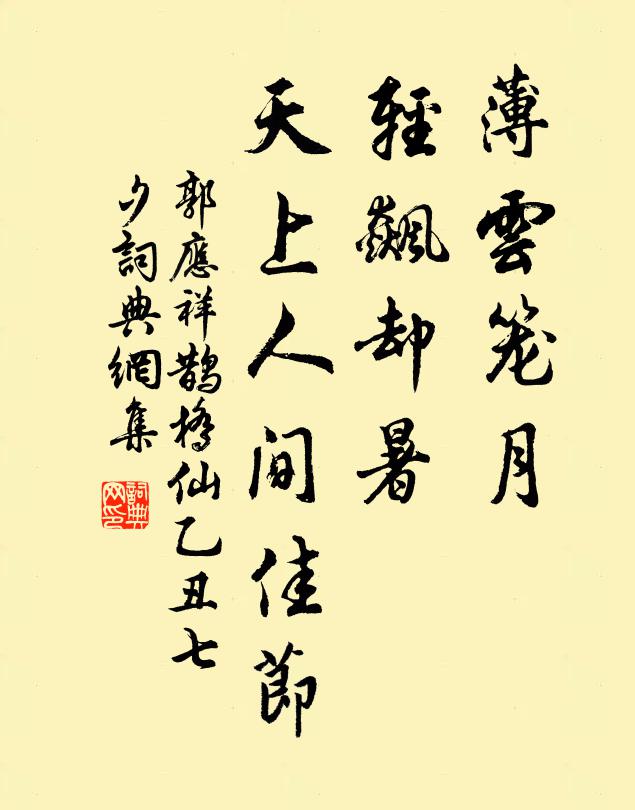 薄雲笼月
輕飆却暑
天上人间佳節
郭應祥鵲橋仙乙丑七
夕詞典網集
詞典
网印